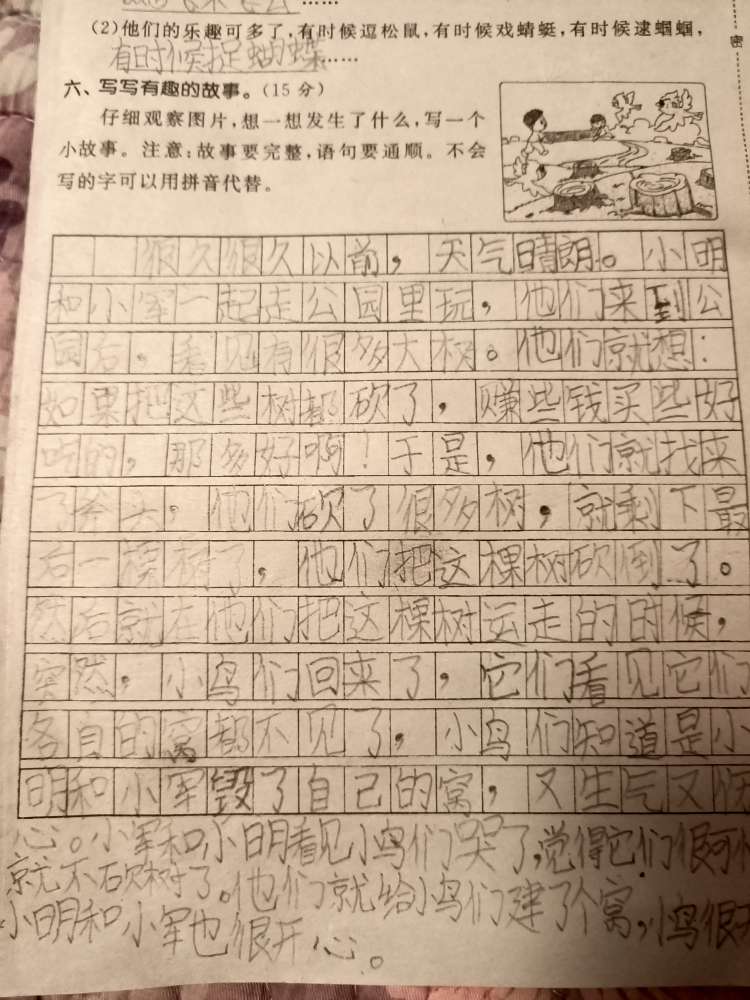 (2)他们的乐趣可多了,有时候逗松鼠,有时候戏蜻蜓,有时候逮蝈蝈,
有时候捉蝴蝶……
密
六、写写有趣的故事。(15分)
仔细观察图片,想一想发生了什么,写一个
小故事。注意:故事要完整,语句要通顺。不会
写的字可以用拼音代替。
很久很久以前,天气晴朗。小明
和小军一起走公园里玩,他们来到公
园后,看见有很多大树。他们就想:
如果把这些树都砍了,赚些钱买些好
吃的,那多好啊!于是,他们就找来
了斧头,他们砍了很多树,就剩下最
后一棵树了,他们把这棵树砍倒了。
然后就在他们把这棵树运走的时候,
突然,小鸟们回来了,它们看见它们
各自的窝都不见了,小鸟们知道是小
明和小军毁了自己的窝,又生气又伤
心。小军和小明看见小鸟们哭了,觉得它们很可
就不砍树了。他们就给小鸟们建了个窝,小鸟很开
小明和小军也很开心。